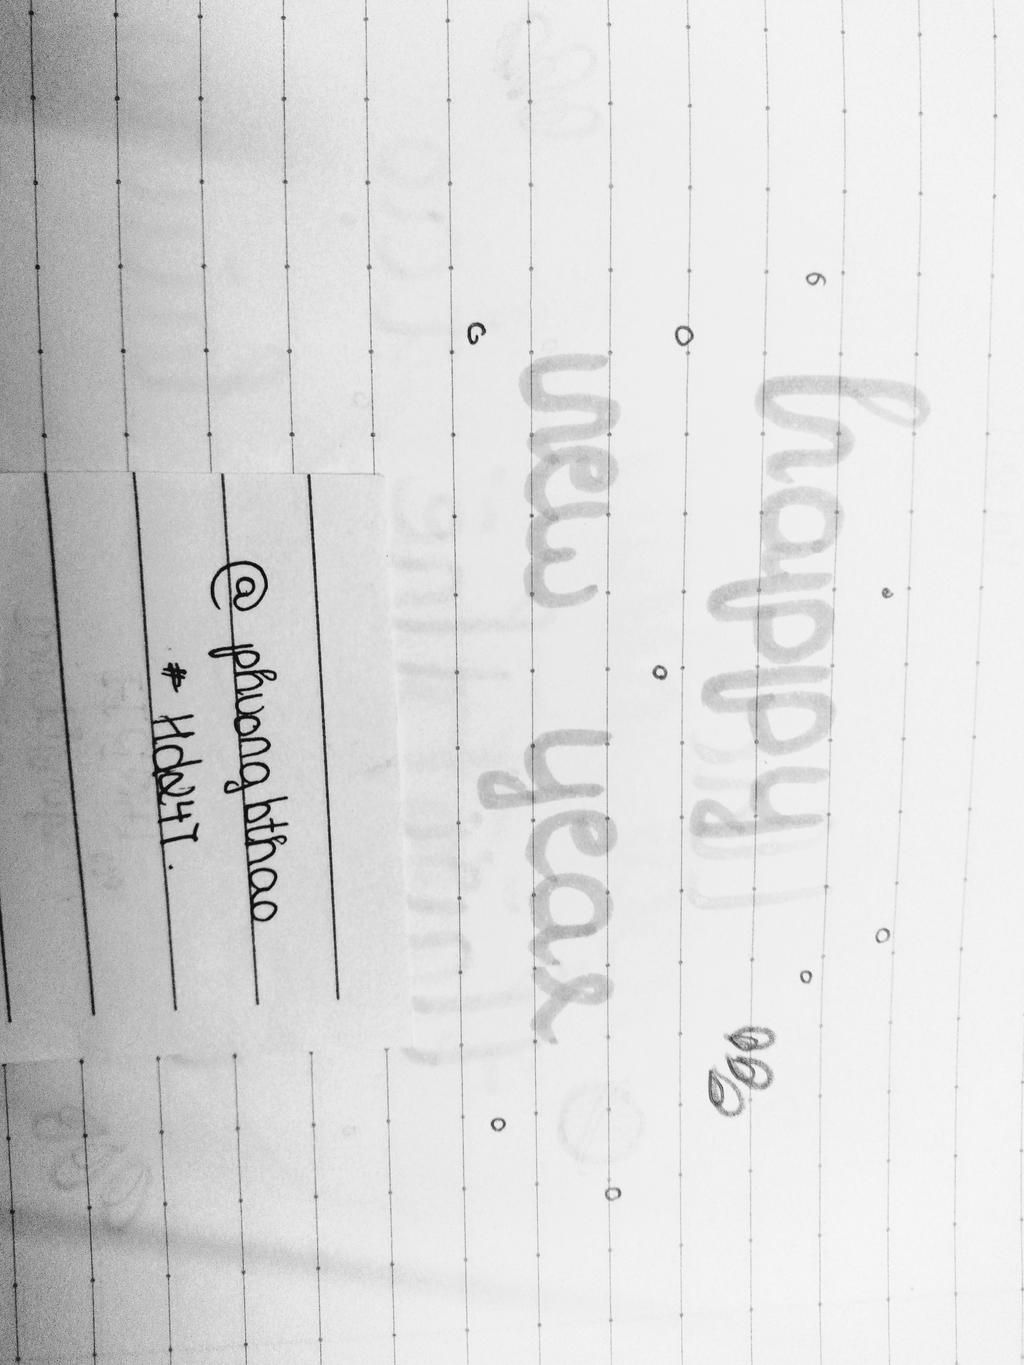 happy
new year
@phuongbthao
# Hdn24T.